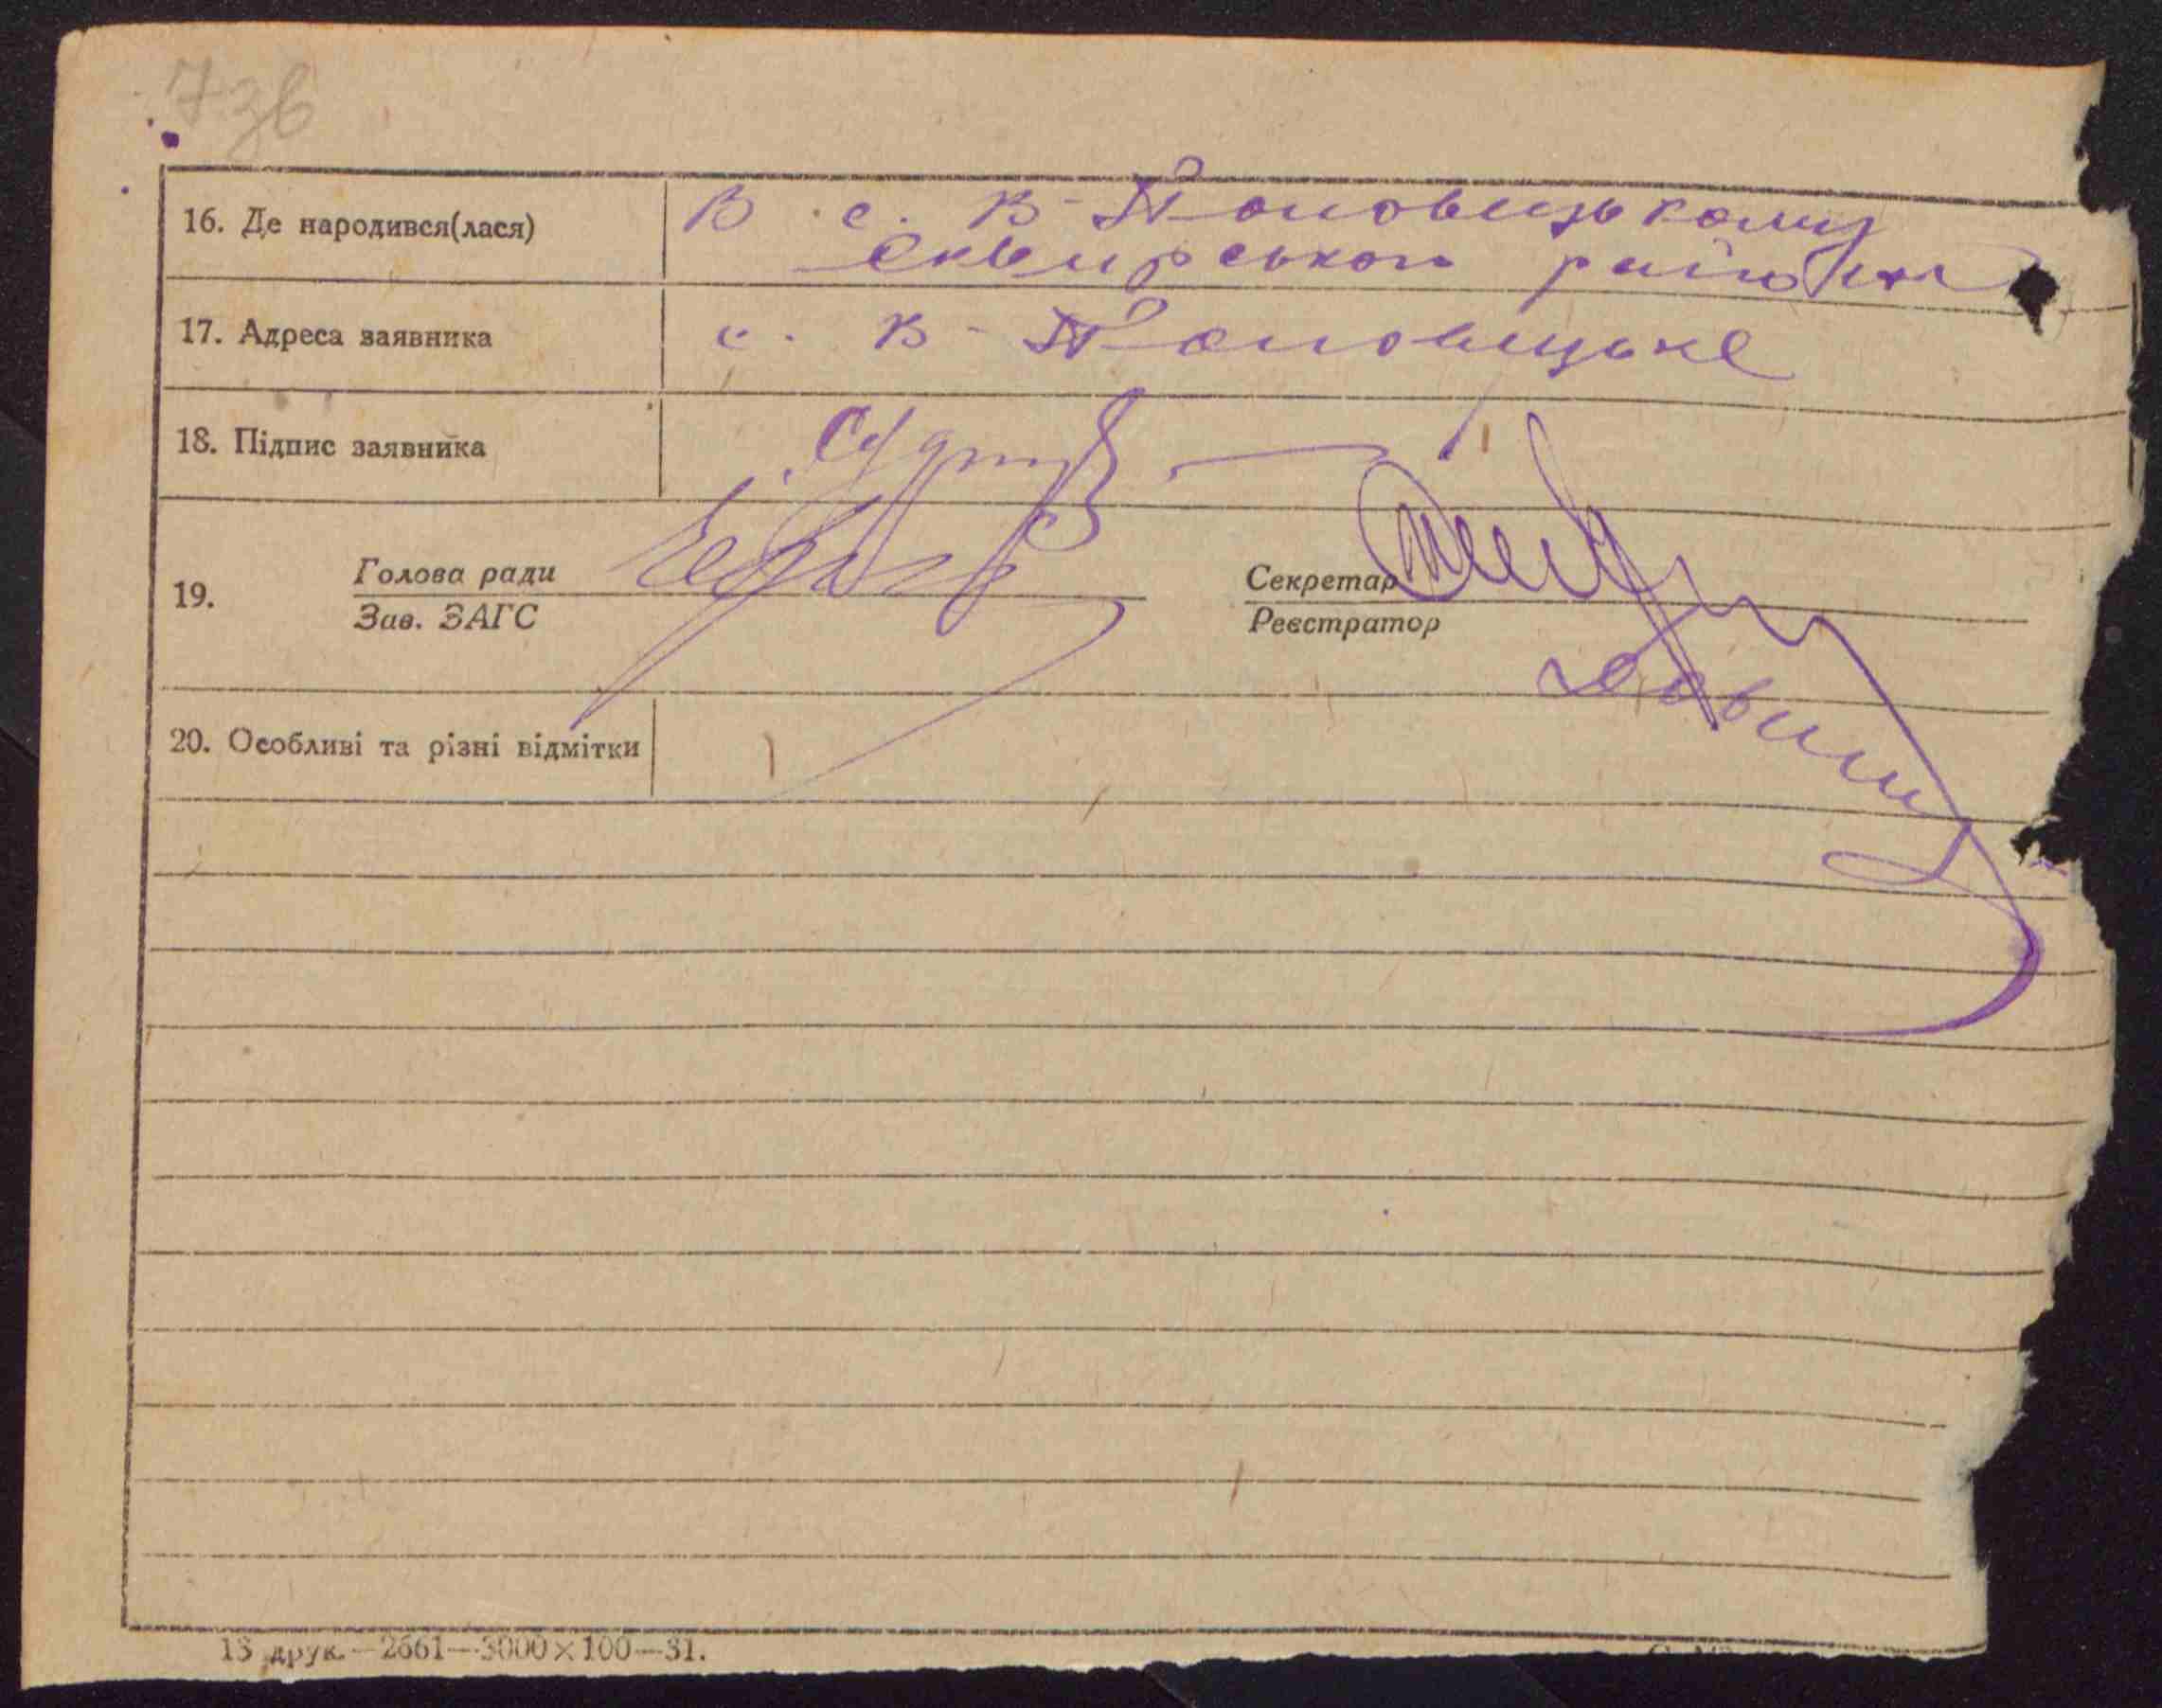 7зв
16. Де народився(лася) В с. В-Половецькому
Сквирського району
17. Адреса заявника с. В-Половецьке
18. Підпис заявника
19. Голова ради Секретар
Зав. ЗАГС Реєстратор
20. Особливі та різні відмітки
13 друк.—2661—3000×100—31.